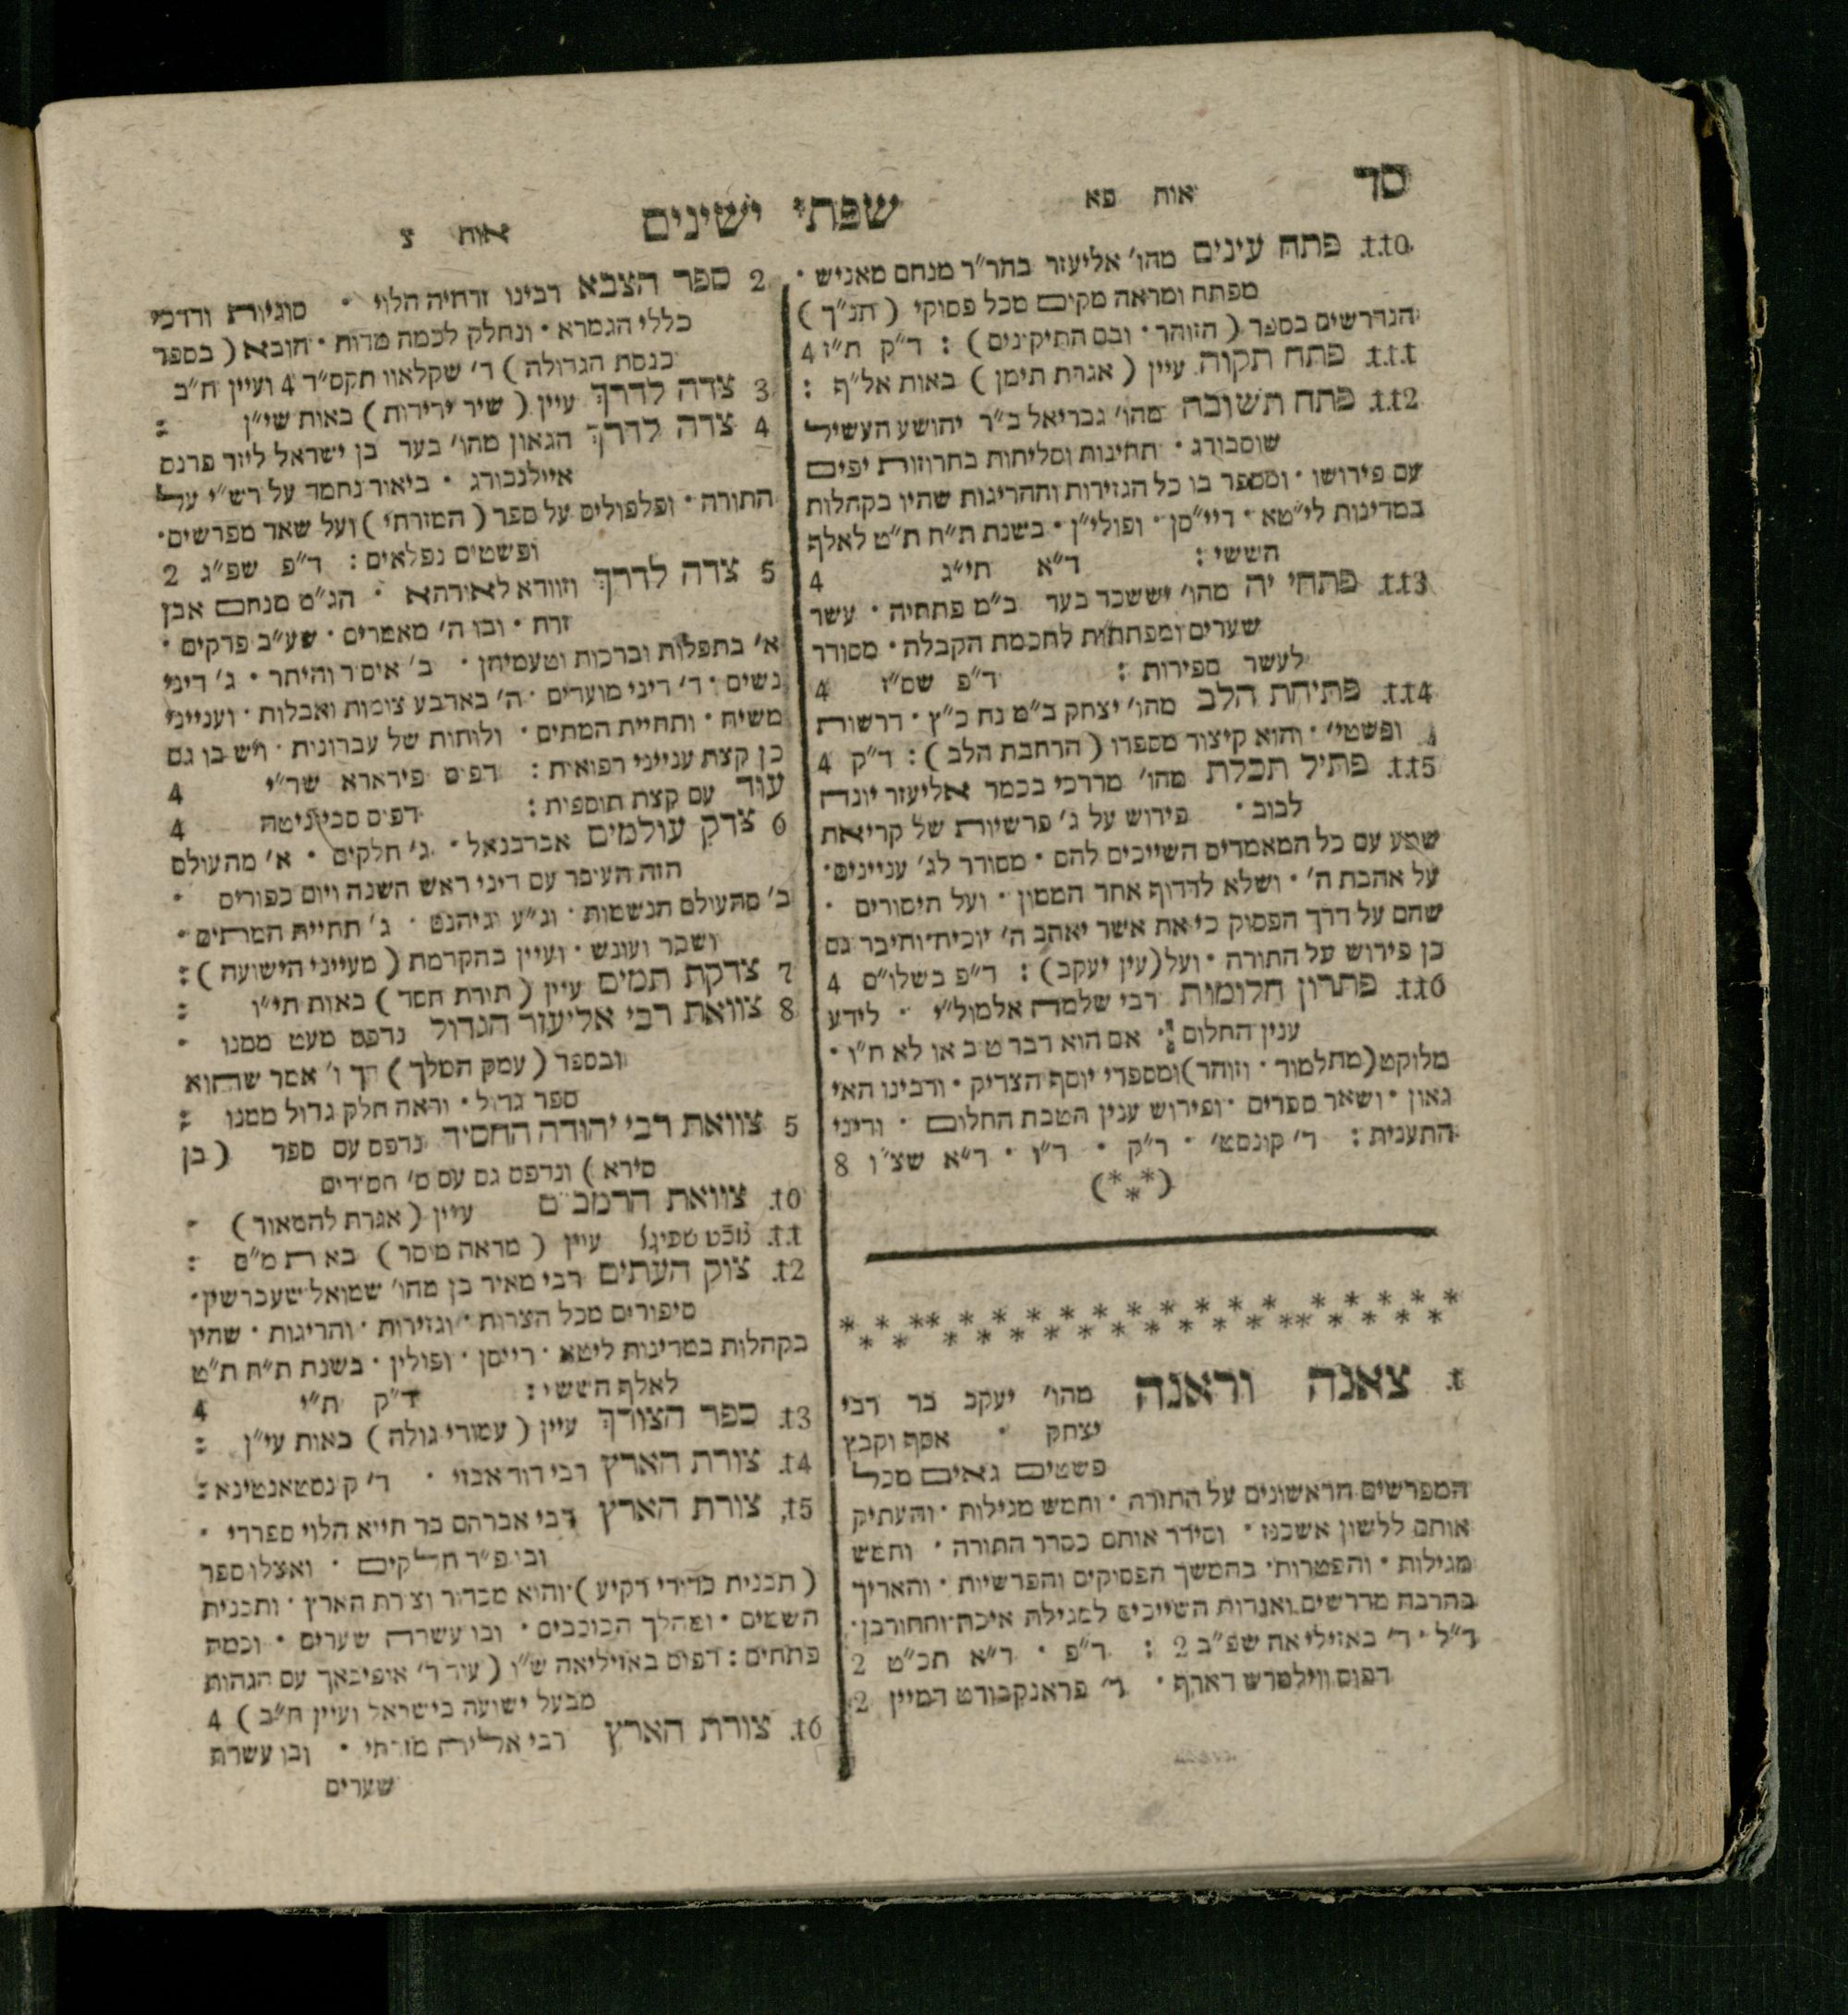 סד
אות פא
שפתי ישינים
אות צ
110. פתח עינים מהו׳ אליעזר בהר״ר מנחם מאניש •
מפתח ומראה מקום מכל פסוקי (תנ״ך)
הנדרשים בספר (הזוהר • ובם התיקונים) : ד״ק ת״ז 4
111. פתח תקוה עיין (אגרת תימן) באות אל״ף :
112. פתח תשובה מהו׳ גבריאל ב״ר יהושע העשיל
שוסבורג • תחינות וסליחות בחרוזות יפים
עם פירושו • ומספר בו כל הגזירות וההריגות שהיו בקהלות
במדינות לי״טא • ריי״סן • ופולי״ן • בשנת ת״ח ת״ט לאלף
הששי : ד״א תי״ג 4
113. פתחי יה מהו׳ יששכר בער ב״מ פתחיה • עשר
שערים ומפתחות לחכמת הקבלה • מסודר
לעשר ספירות : ד״פ שס״ז 4
114. פתיחת הלב מהו׳ יצחק ב״מ נח כ״ץ • דרשות
ופשטי׳ • והוא קיצור מספרו (הרחבת הלב) : ד״ק 4
115. פתיל תכלת מהו׳ מרדכי בכמר אליעזר יונה
לבוב • פירוש על ג׳ פרשיות של קריאת
שמע עם כל המאמרים השייכים להם • מסודר לג׳ עניינים •
על אהבת ה׳ • ושלא לרדוף אחר הממון • ועל היסורים •
שהם על דרך הפסוק כי את אשר יאהב ה׳ יוכיח • וחיבר גם
כן פירוש על התורה • ועל (עין יעקב) : ד״פ בשלו״ם 4
116. פתרון חלומות רבי שלמה אלמול״י • לידע
ענין החלום • אם הוא דבר טוב או לא ח״ו •
מלוקט (מתלמוד • וזוהר) ומספרי יוסף הצדיק • ורבינו האי
גאון • ושאר ספרים • ופירוש ענין הטבת החלום • ודיני
התענית : ד׳ קונסט׳ • ד״ק • ד״ו • ד״א שצ״ו 8
(***)
1. צאנה וראנה מהו׳ יעקב בר רבי
יצחק • אסף וקבץ
פשטים נאים מכל
המפרשים הראשונים על התורה • וחמש מגילות • והעתיק
אותם ללשון אשכנז • וסידר אותם כסדר התורה • וחמש
מגילות • והפטרות • בהמשך הפסוקים והפרשיות • והאריך
בהרבה מדרשים ואגדות השייכים למגילת איכה • וחורבן •
ד״ל • ד׳ באזיליאה שפ״ב 2 : ד״פ • ד״א תכ״ט 2
דפוס ווילמרש דארף • ד׳ פראנקבורט דמיין 2
2 ספר הצבא רבינו זרחיה הלוי • סוגיות ודרכי
כללי הגמרא • ונחלק לכמה מדות • הובא (בספר
כנסת הגדולה) ד׳ שקלאוו תקס״ד 4 ועיין ח״ב
3 צדה לדרך עיין (שיר ידידות) באות שי״ן :
4 צדה לדרך הגאון מהו׳ בער בן ישראל ליזר פרנס
איילנבורג • ביאור נחמד על רש״י על
התורה • ופלפולים על ספר (המזרחי) ועל שאר מפרשים •
ופשטים נפלאים : ד״פ שפ״ג 2
5 צדה לדרך וזוודא לאורחא • הג״מ מנחם אבן
זרח • ובו ה׳ מאמרים • שע״ב פרקים •
א׳ בתפלות וברכות וטעמיהן • ב׳ איסור והיתר • ג׳ דיני
נשים • ד׳ דיני מועדים • ה׳ בארבע צומות ואבלות • וענייני
משיח • ותחיית המתים • ולוחות של עברונות • ויש בו גם
כן קצת ענייני רפואות : דפוס פירארא שי״ד 4
עוד עם קצת תוספות : דפוס סביוניטה 4
6 צדק עולמים אברבנאל • ג׳ חלקים • א׳ מהעולם
הזה העובר עם דיני ראש השנה ויום כפורים •
ב׳ מהעולם הנשמות • וג״ע וגיהנם • ג׳ תחיית המתים •
ושכר ועונש • ועיין בהקדמת (מעייני הישועה) :
7 צדקת תמים עיין (תורת חסד) באות תי״ו :
8 צוואת רבי אליעזר הגדול נדפס מעט ממנו •
ובספר (עמק המלך) דף ו׳ אמר שהוא
ספר גדול • וראה חלק גדול ממנו :
5 צוואת רבי יהודה החסיד נדפס עם ספר (בן
סירא) ונדפס גם עם ס׳ חסידים
10. צוואת הרמב״ם עיין (אגרת להמאור) •
11. עיין (מראה מוסר) באות מ״ם :
12. צוק העתים רבי מאיר בן מהו׳ שמואל שעברשין •
סיפורים מכל הצרות • וגזירות • והריגות • שהיו
בקהלות במדינות ליטא • רייסן • ופולין • בשנת ת״ח ת״ט
לאלף הששי : ד״ק ת״י 4
13. ספר הצורך עיין (עמודי גולה) באות עי״ן :
14. צורת הארץ רבי דוד אבוי • ד׳ קונסטאנטינא :
15. צורת הארץ רבי אברהם בר חייא הלוי ספרדי •
ובו פ״ד חלקים • ואצלו ספר
(תכנית כדורי רקיע) והוא מכדור וצורת הארץ • ותכנית
השמים • ומהלך הכוכבים • ובו עשרה שערים • וכמה
פתחים : דפוס באזיליאה ש״ו (עוד ד׳ אופיבאך עם הגהות
מבעל ישועה בישראל ועיין ח״ב) 4
16. צורת הארץ רבי אליה מזרחי • ובו עשרת
שערים